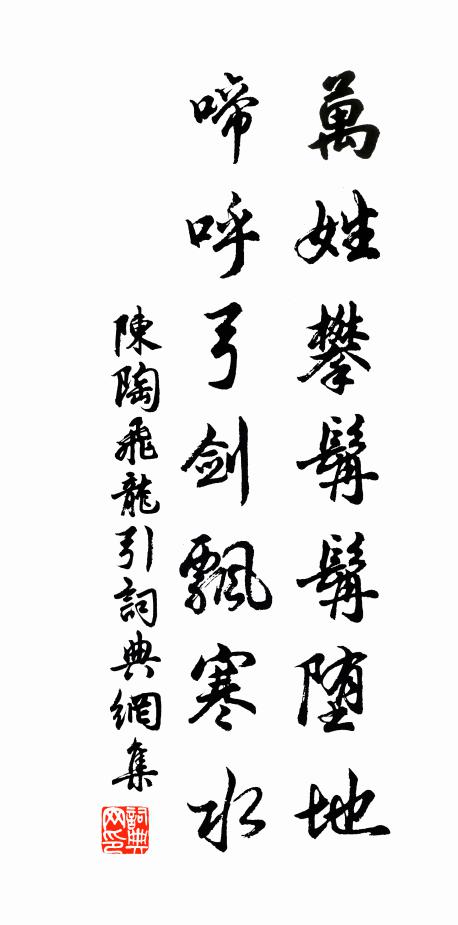 萬姓攀髯髯堕地
啼呼弓劍飄寒水
陳陶飛龍引詞典網集
詞典網印